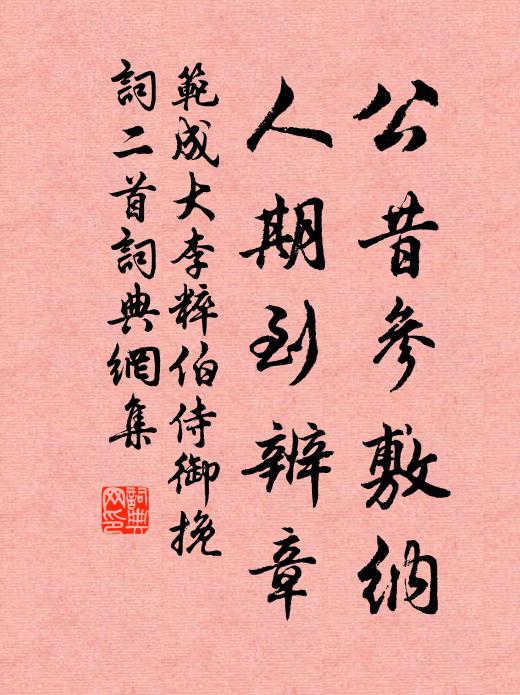 公昔參敷納
人期到辨章
範成大李粹伯侍御挽
詞二首詞典網集
詞典
网印